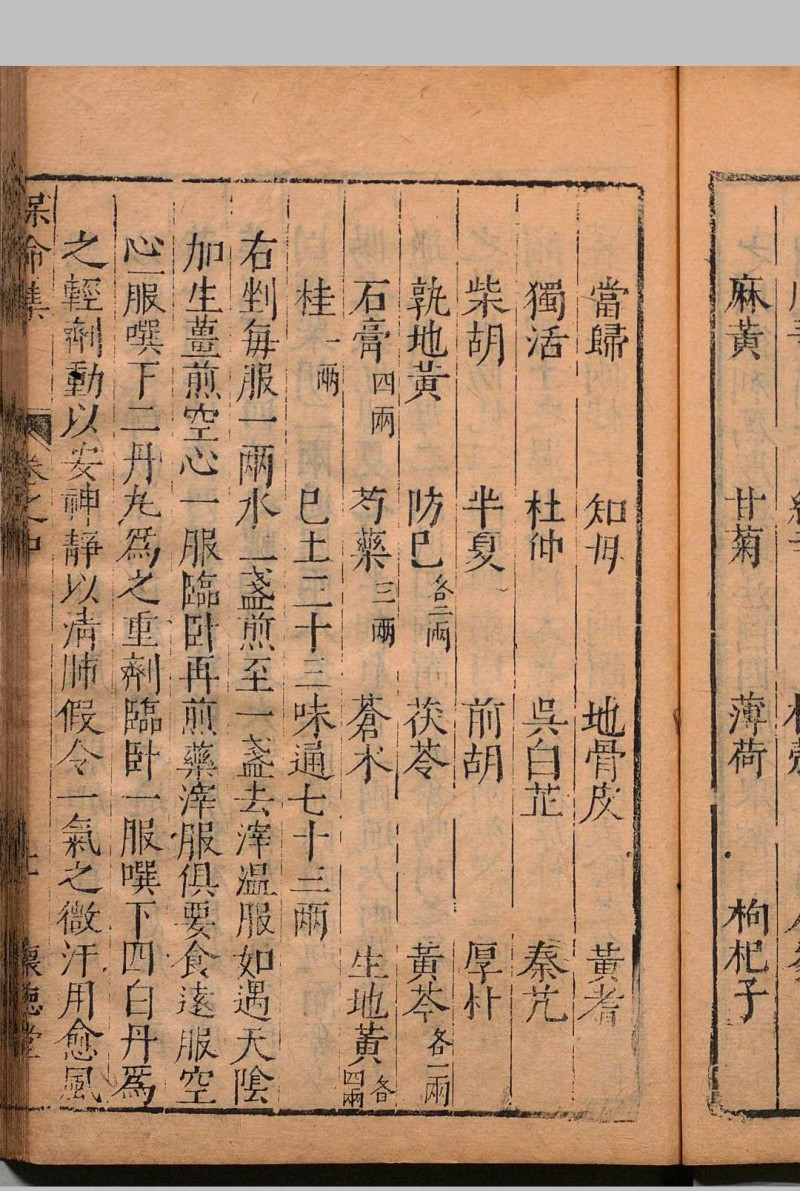 麻黄　甘菊　薄荷　枸杞子
當歸　知母　地骨皮　黄耆
獨活　杜仲　吳白芷　秦艽
柴胡　半夏　前胡　厚朴
熟地黄　防巳各二兩　茯苓　黄芩各一兩
石膏四兩　芍藥三兩　蒼术　生地黄各四兩
桂一兩　巳上二十三味通七十三兩
右剉每服一兩水二盞煎至一盞去滓溫服如遇天陰
加生薑煎空心一服臨卧再煎藥滓服俱要食遠服空
心一服噀下二丹丸爲之重劑臨卧一服噀下四白丹爲
之輕劑動以安神靜以清肺假令一氣之微汗用愈風
保命集　卷之中　懷德堂